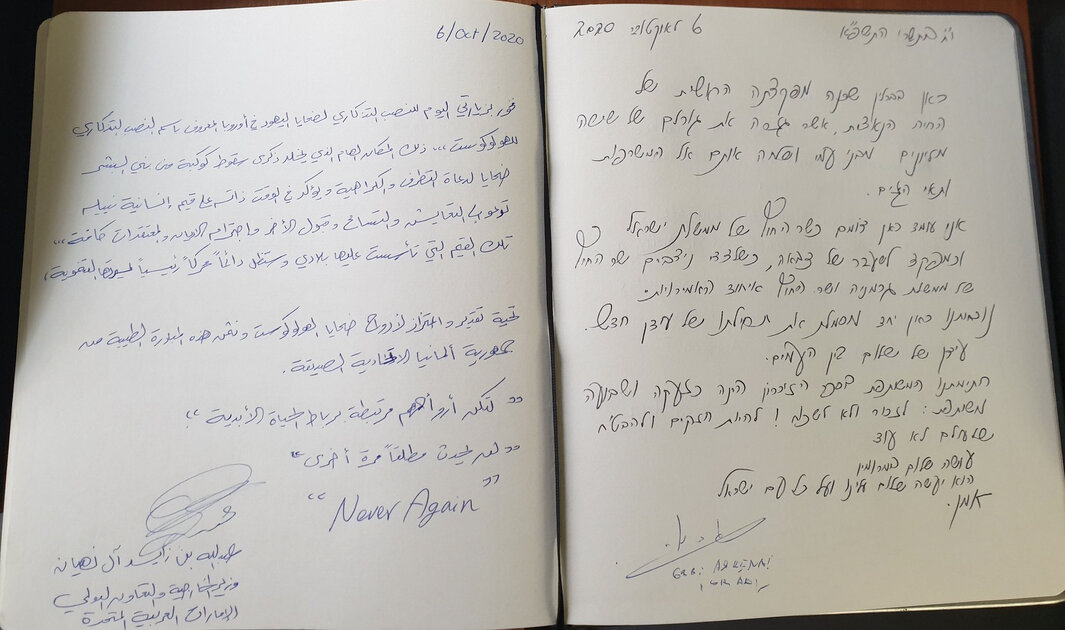 6/Oct/2020
فور زيارتي اليوم للنصب التذكاري لضحايا اليهود في أوروبا المعروف باسم النصب التذكاري
للهولوكوست ... ذلك المكان الهام الذي يخلد ذكرى سقوط كوكبة من بني البشر
ضحايا لدعاة التطرف والكراهية ويؤكد في الوقت ذاته على قيم إنسانية نبيلة
التعايش والتسامح وقبول الآخر واحترام الأديان والمعتقدات كافة ...
تلك القيم التي تأسست عليها بلادي وستظل دائماً محركاً رئيسياً لمسيرتها التنموية،
تحية تقدير واعتزاز لأرواح ضحايا الهولوكوست ونثمن هذه المبادرة الطيبة من
جمهورية ألمانيا الاتحادية الصديقة.
" لتكن أرواحهم مرتبطة برباط الحياة الأبدية "
" لن يحدث مطلقاً مرة أخرى "
"Never Again"
عبدالله بن زايد آل نهيان
وزير الخارجية والتعاون الدولي
الإمارات العربية المتحدة
י"ח בתשרי התשפ"א 6 לאוקטובר 2020
כאן בברלין שכנה מפקדתה הראשית של
החיה הנאצית, אשר גזרה את גורלם של שישה
מיליונים מבני עמי ושלחה אותם אל המשרפות
ותאי הגזים.
אני עומד כאן היום כשר החוץ של ממשלת ישראל
וכמפקד לשעבר של צבאה, כשלצדי ניצבים שר החוץ
של ממשלת גרמניה ושר החוץ איחוד האמירויות.
נוכחותנו כאן יחד מסמלת את תחילתו של עידן חדש.
עידן של שלום בין העמים.
חתימתנו המשותפת בספר הזיכרון הינה כזעקה ושבועה
משותפת: לזכור ולא לשכוח! להיות חזקים ולהבטיח
שלעולם לא עוד
עושה שלום במרומיו
הוא יעשה שלום עלינו ועל כל עם ישראל
אמן.